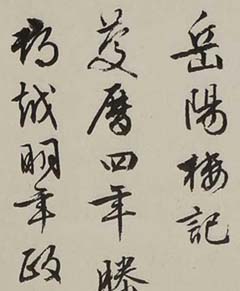 岳陽樓記
慶曆四年滕
得越明年政